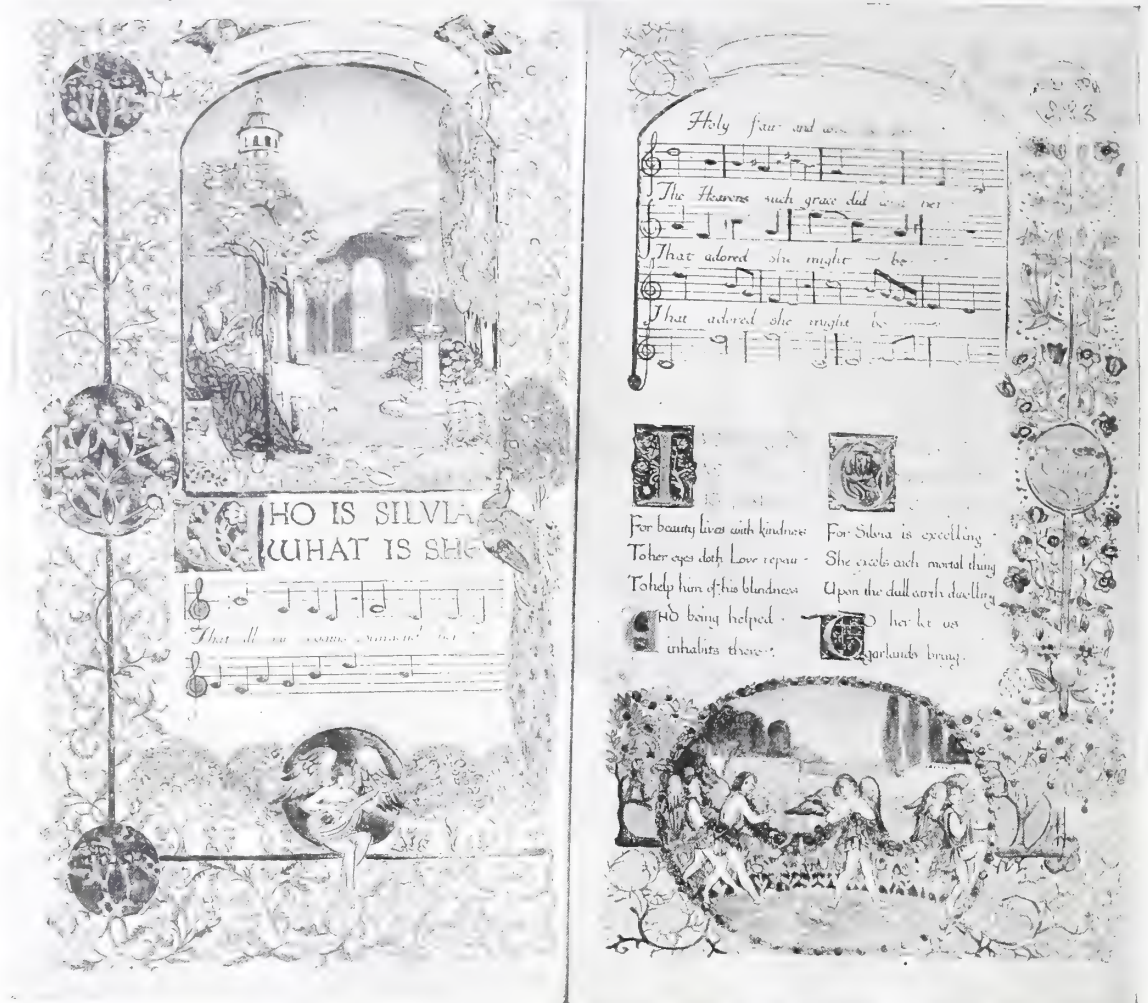 WHO IS SILVIA
WHAT IS SHE
That all
Holy fair and
The Heavens such grace did her
That adored she might be
That adored she might be
I
For beauty lives with kindness
To her eyes doth Love repair
To help him of his blindness
AND being helped
inhabits there
For Silvia is excelling
She excels each mortal thing
Upon the dull earth dwelling
TO her let us
garlands bring.